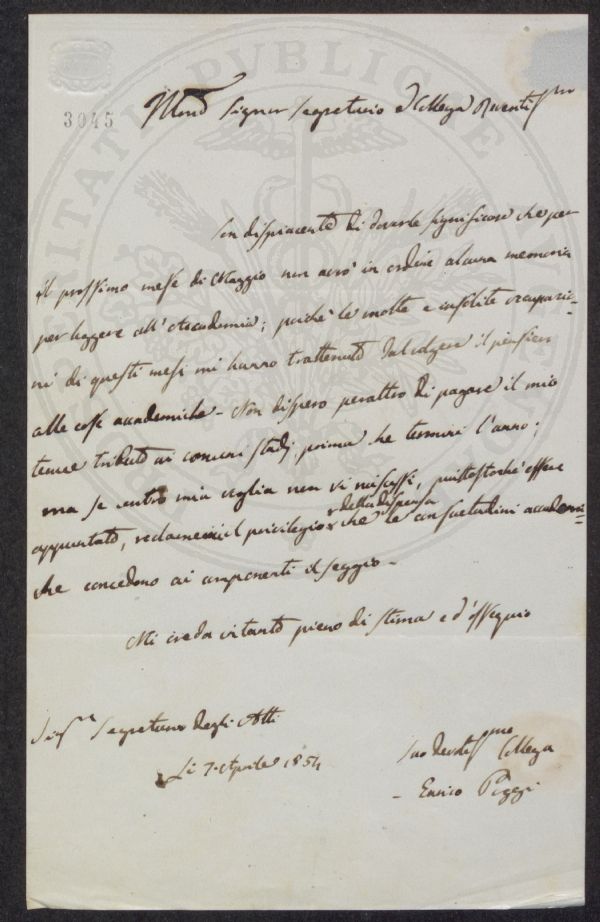 3045
Signor Segretario e Collega
Son dispiacente di doverle significare che per
il prossimo mese di Maggio non avrò in ordine alcuna memoria
per leggere all'Accademia; poiché le molte e insolite occupazio=
ni di questi mesi mi hanno trattenuto dal volgere il pensiero
alle cose accademiche – Non dispero peraltro di pagare il mio
tenue tributo ai comuni studj prima che termini l'anno;
ma se contro mia voglia non vi riuscissi, piuttostoché essere
appuntato, reclamerei il privilegio della dispensa che le consuetudini accademi=
che concedono ai componenti il seggio –
Mi creda intanto pieno di stima e d'ossequio
Segretario degli Atti
Li 7 Aprile 1854
Suo Collega
– Enrico Poggi